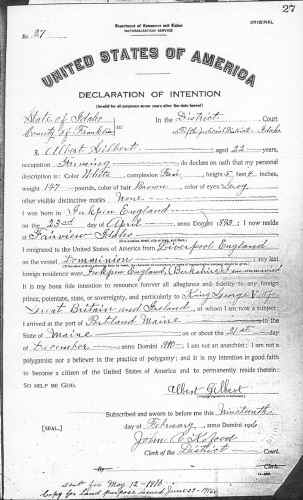 27
Department of Commerce and Labor
ORIGINAL
NATURALIZATION SERVICE
No. 27
UNITED STATES OF AMERICA
DECLARATION OF INTENTION
(Invalid for all purposes seven years after the date hereof)
State of Idaho
In the District Court
County of Franklin ss:
of Fifth Judicial District Idaho
I, Albert Gilbert, aged 22 years,
occupation Farming, do declare on oath that my personal
description is: Color White, complexion Fair, height 5 feet 8 inches,
weight 147 pounds, color of hair Brown, color of eyes Grey
other visible distinctive marks None
I was born in Inkpen England
on the 23rd day of April, anno Domini 1893; I now reside
at Fairview Idaho
I emigrated to the United States of America from Liverpool England
on the vessel Dominion; my last
foreign residence was Inkpen England, (Berkshire)
It is my bona fide intention to renounce forever all allegiance and fidelity to any foreign
prince, potentate, state, or sovereignty, and particularly to King George V. of
Great Britain and Ireland, of whom I am now a subject
I arrived at the port of Portland Maine, in the
State of Maine on or about the 21st day
of December, anno Domini 1910; I am not an anarchist; I am not a
polygamist nor a believer in the practice of polygamy; and it is my intention in good faith
to become a citizen of the United States of America and to permanently reside therein:
SO HELP ME GOD.
Albert Gilbert
Subscribed and sworn to before me this Nineteenth
[SEAL.] day of February, anno Domini 1916
John
Clerk of the District Court.
By Clerk.
sent for May 12 - 1916
Copy for Land purpose issued June